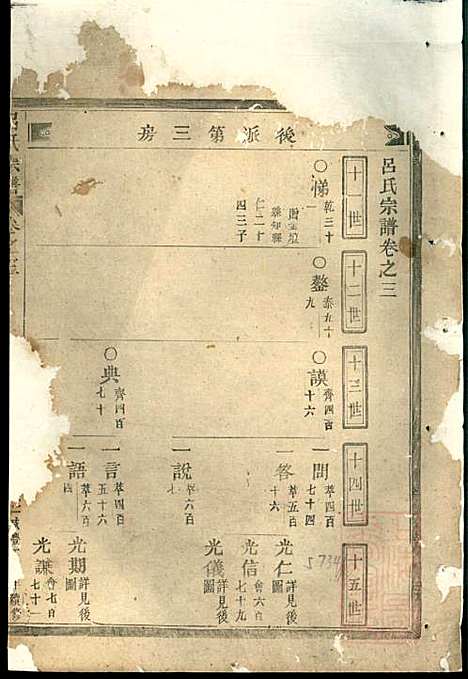 呂氏宗譜卷之三
後派第三房
十一世
十二世
十三世
十四世
十五世
悌
乾三十一
仁二十
四三子
鏊
泰五十九
謨
齊四百十六
典
齊四百七十
問
萃四百七十四
答
萃五百十六
說
萃六百七
言
萃四百五十六
語
萃六百
光仁
詳見後圖
光信
會六百七十九
光儀
詳見後圖
光期
詳見後圖
光謙
會七百七十一
5734
呂氏宗譜
卷之三